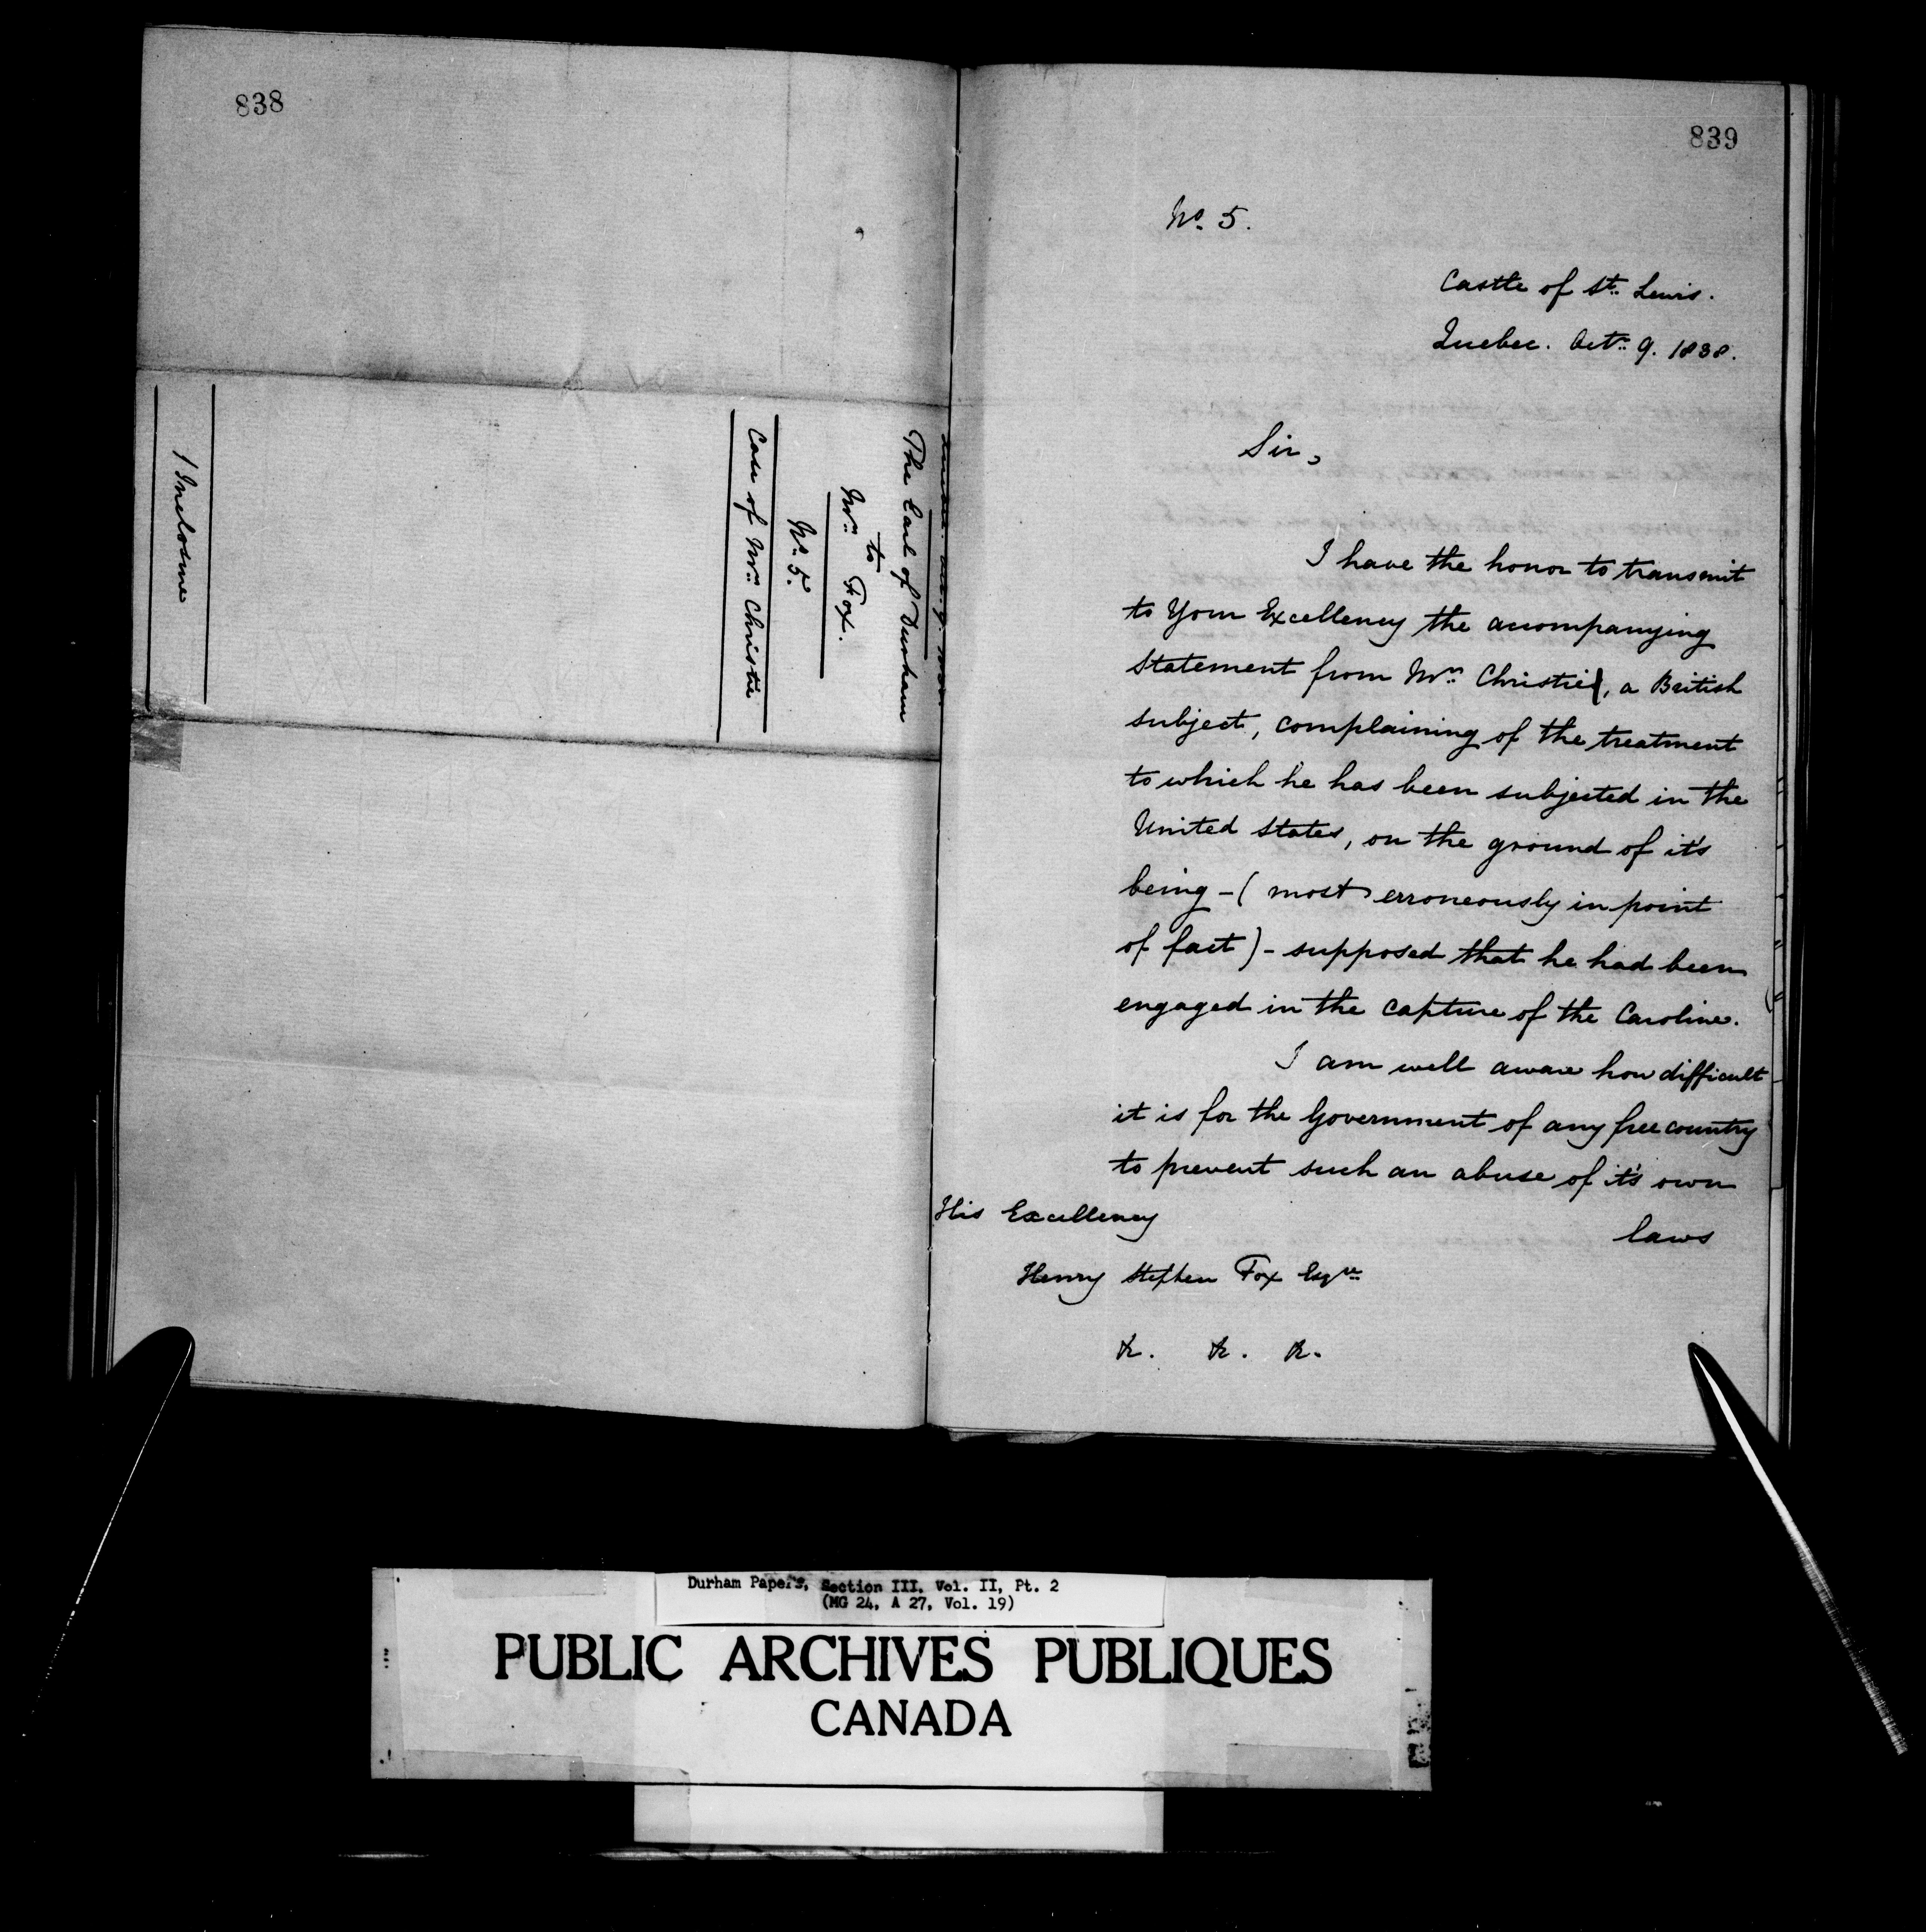 838
Quebec. Oct. 9. 1838
The Earl of Durham
to
Mr. Fox.
No. 5.
Case of Mr. Christie
1 Inclosure
839
No. 5.
Castle of St. Lewis.
Quebec. Oct. 9. 1838.
Sir,
I have the honor to transmit
to Your Excellency the accompanying
statement from Mr. Christie, a British
subject, complaining of the treatment
to which he has been subjected in the
United States, on the ground of it's
being - (most erroneously in point
of fact) - supposed that he had been
engaged in the capture of the Caroline.
I am well aware how difficult
it is for the Government of any free country
to prevent such an abuse of it's own
laws
His Excellency
Henry Stephen Fox Esqre
&. &. &.
Durham Papers, Section III, Vol. II, Pt. 2
(MG 24, A 27, Vol. 19)
PUBLIC ARCHIVES PUBLIQUES
CANADA